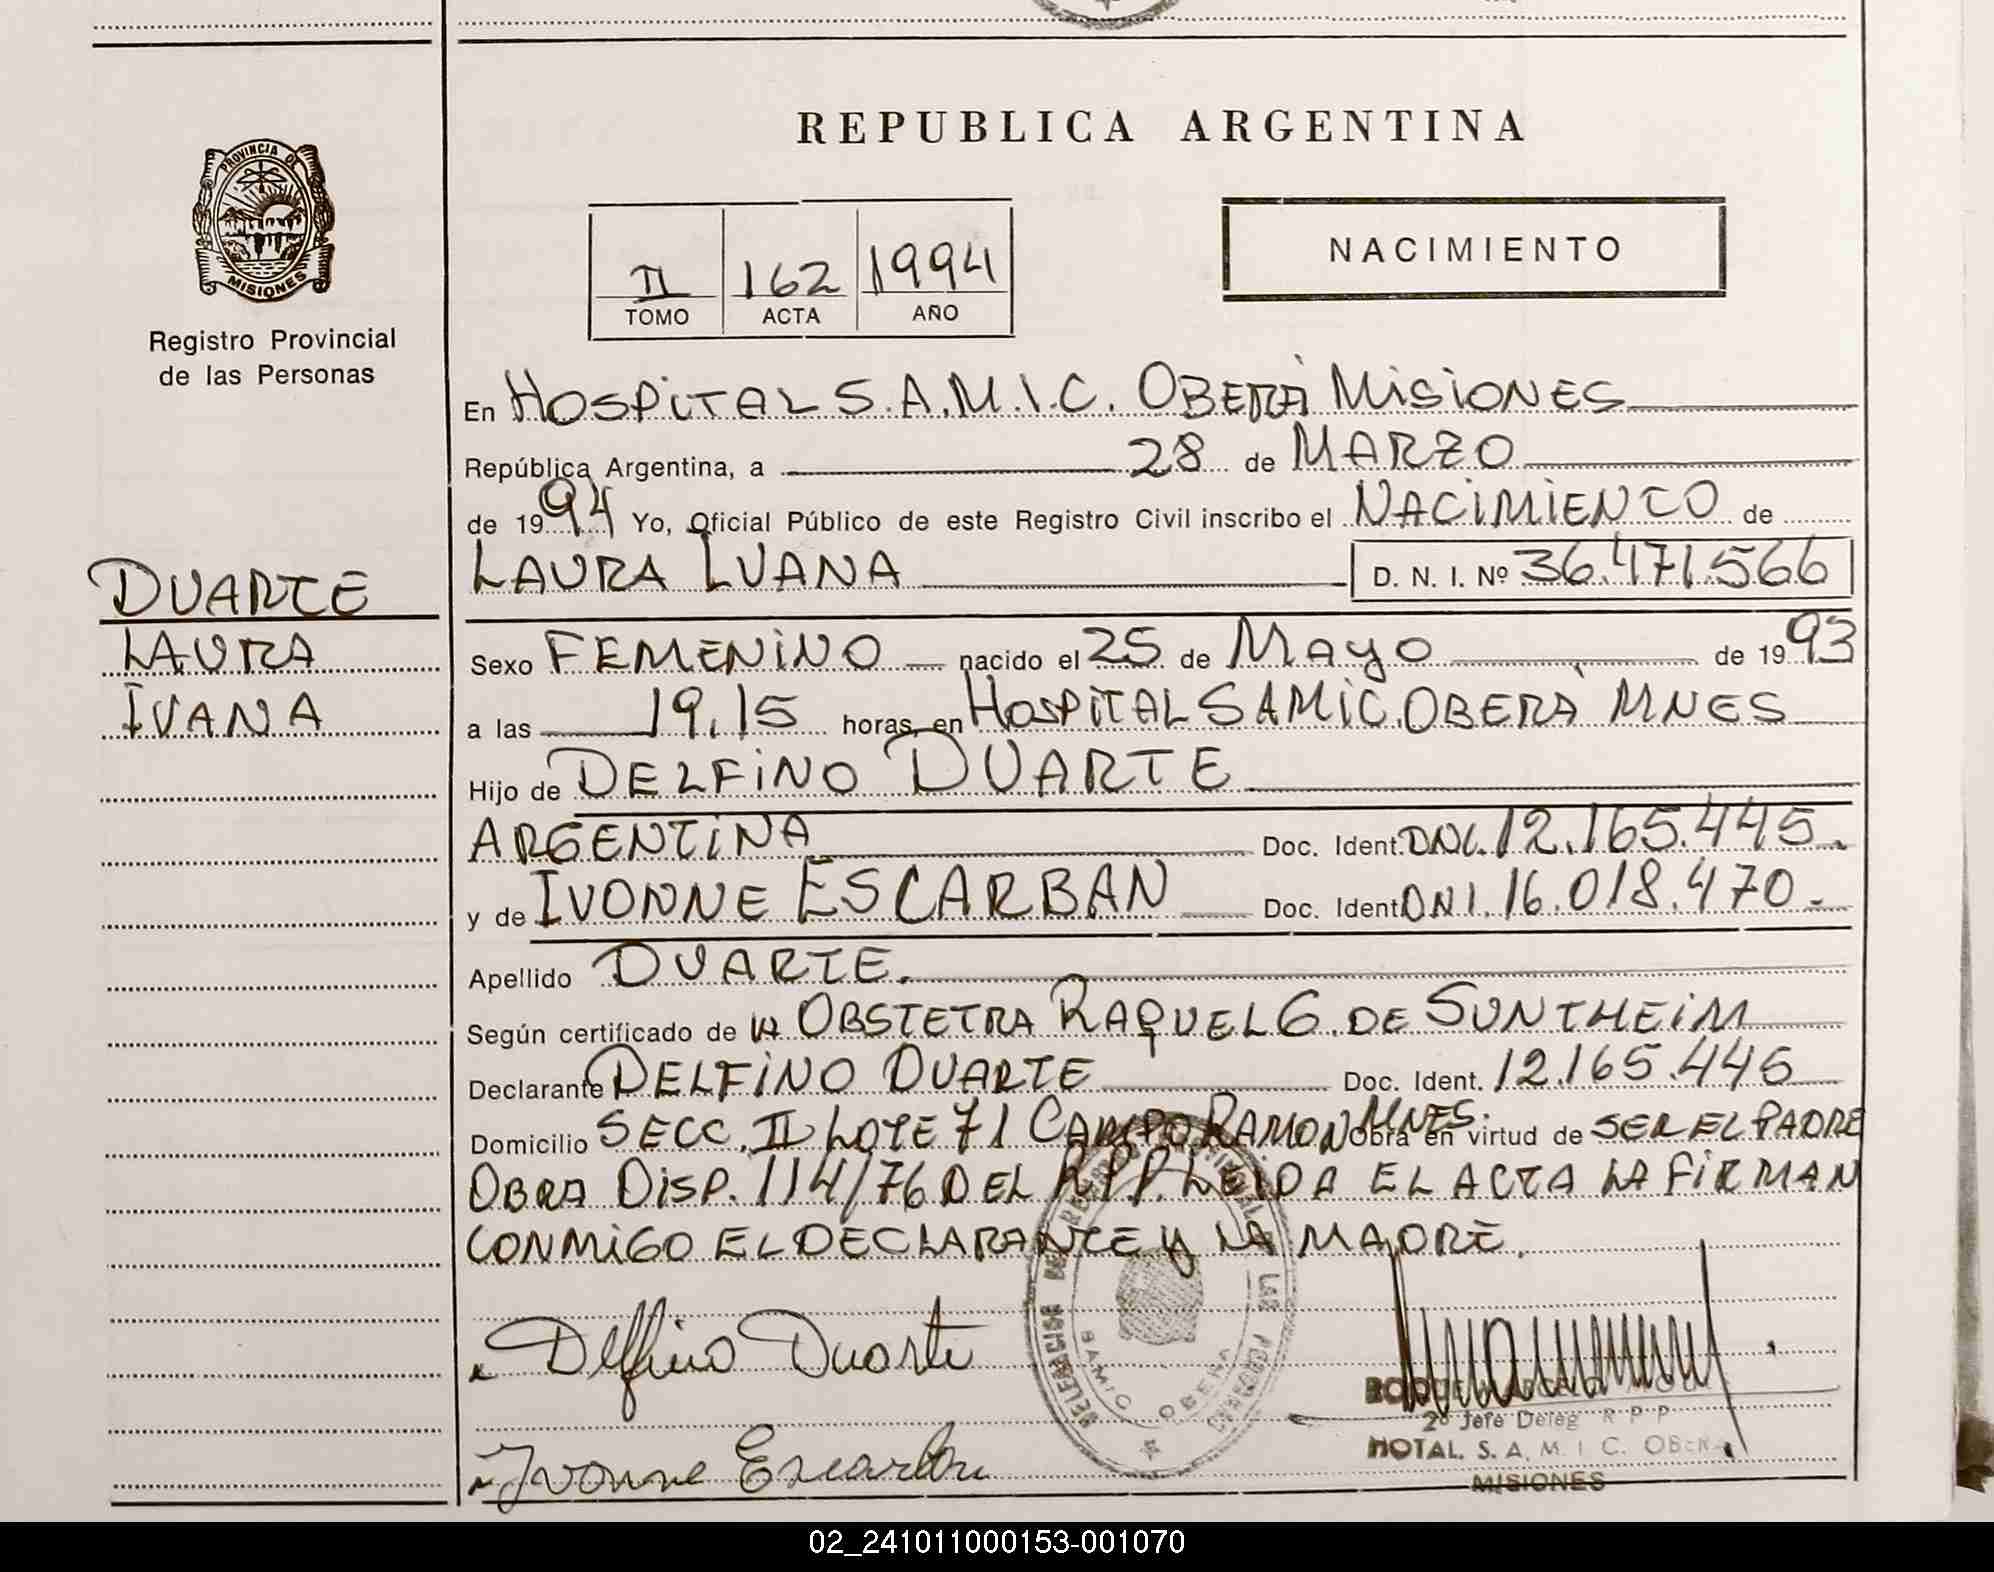 REPUBLICA ARGENTINA
PROVINCIA DE
MISIONES
Registro Provincial
de las Personas
II 162 1994
TOMO ACTA AÑO
NACIMIENTO
En HOSPITAL S.A.M.I.C. OBERÁ MISIONES
República Argentina, a 28 de MARZO
de 1994 Yo, Oficial Público de este Registro Civil inscribo el NACIMIENTO de
LAURA IVANA D. N. I. Nº 36.471.566
DUARTE
LAURA
IVANA
Sexo FEMENINO nacido el 25 de MAYO de 1993
a las 19.15 horas, en HOSPITAL SAMIC. OBERÁ MNES
Hijo de DELFINO DUARTE
ARGENTINA Doc. Ident. DNI. 12.165.445.
y de IVONNE ESCARBAN Doc. Ident. DNI. 16.018.470.
Apellido DUARTE.
Según certificado de LA OBSTETRA RAQUEL G. DE SUNTHEIM
Declarante DELFINO DUARTE Doc. Ident. 12.165.445
Domicilio SECC. II LOTE 71 CAMPO RAMON MNES. Obra en virtud de SER EL PADRE
OBRA DISP. 114/76 DEL R.P.P. LEIDA EL ACTA LA FIRMAN
CONMIGO EL DECLARANTE Y LA MADRE.
Delfino Duarte
Ivonne Escarban
SAMIC OBERA
2º Jefe Deleg R P P
HOTAL. S. A. M. I C. OBERA
MISIONES
02_241011000153-001070